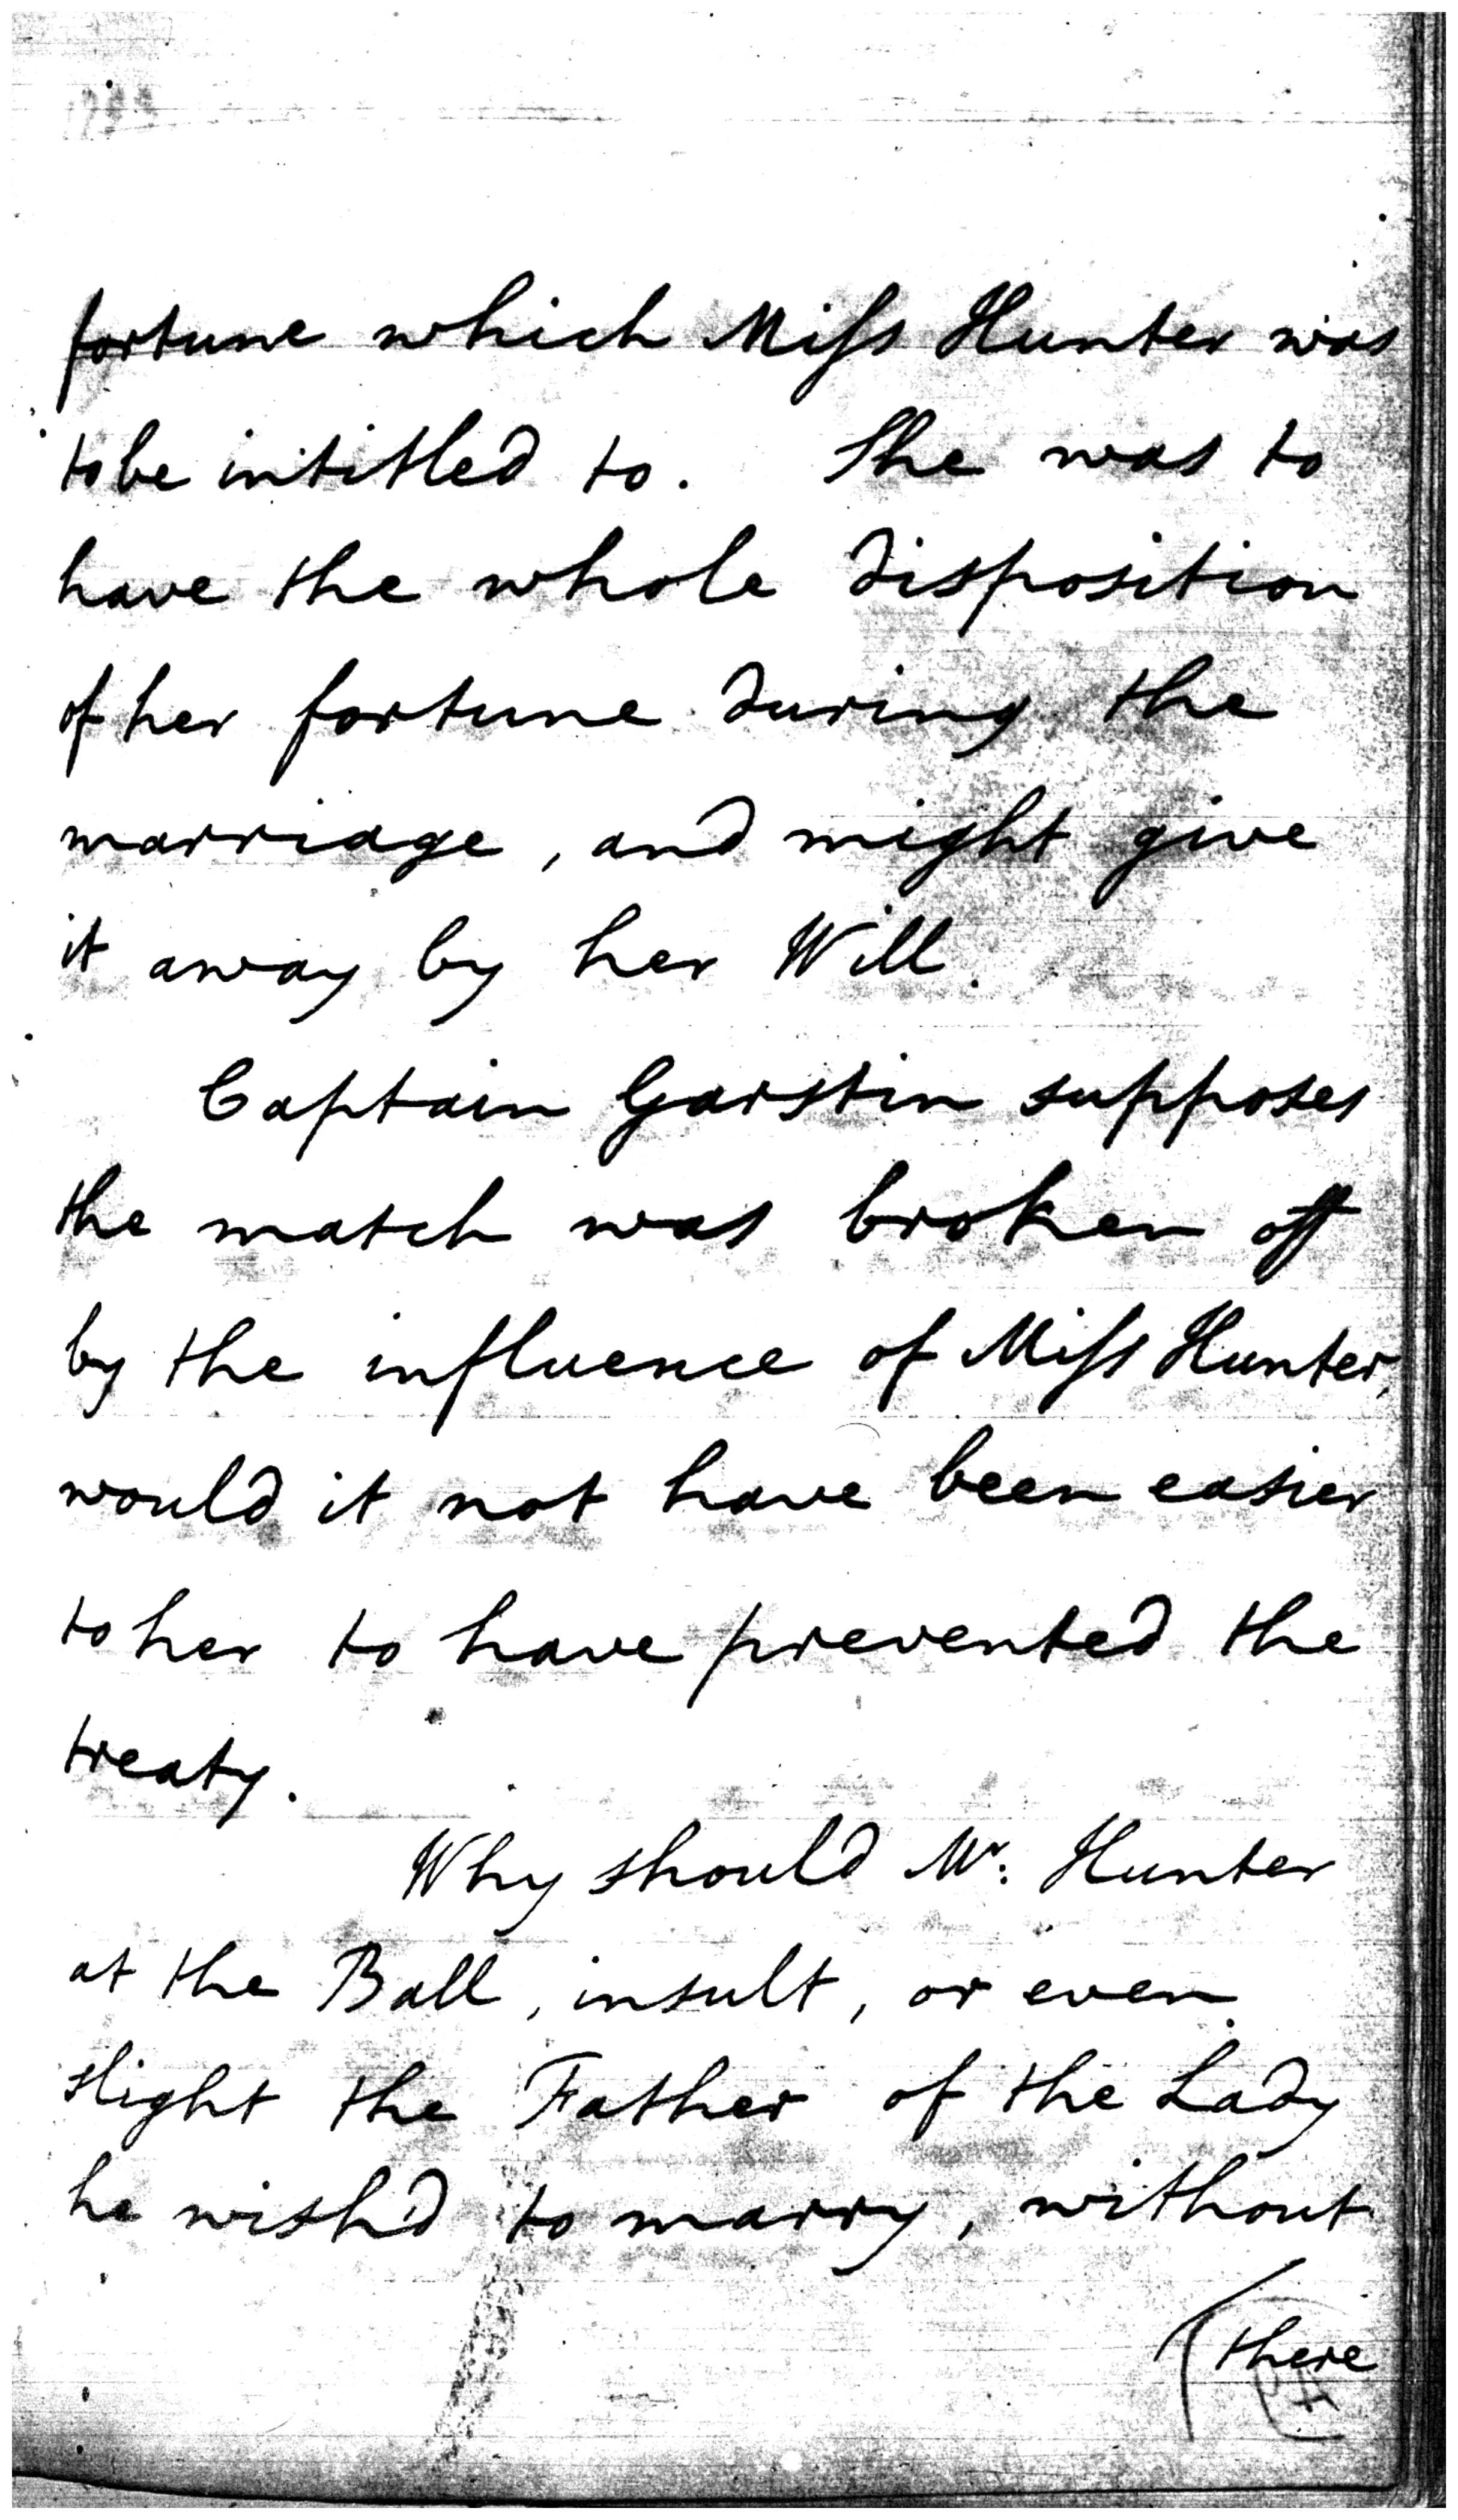 fortune which Miſs Hunter was
to be intitled to. She was to
have the whole disposition
of her fortune during the
marriage, and might give
it away by her Will.
Captain Garstin supposes
the match was broken off
by the influence of Miſs Hunter,
would it not have been easier
to her to have prevented the
treaty.
Why should Mr. Hunter
at the Ball, insult, or even
slight the Father of the Lady
he wish'd to marry, without
(there